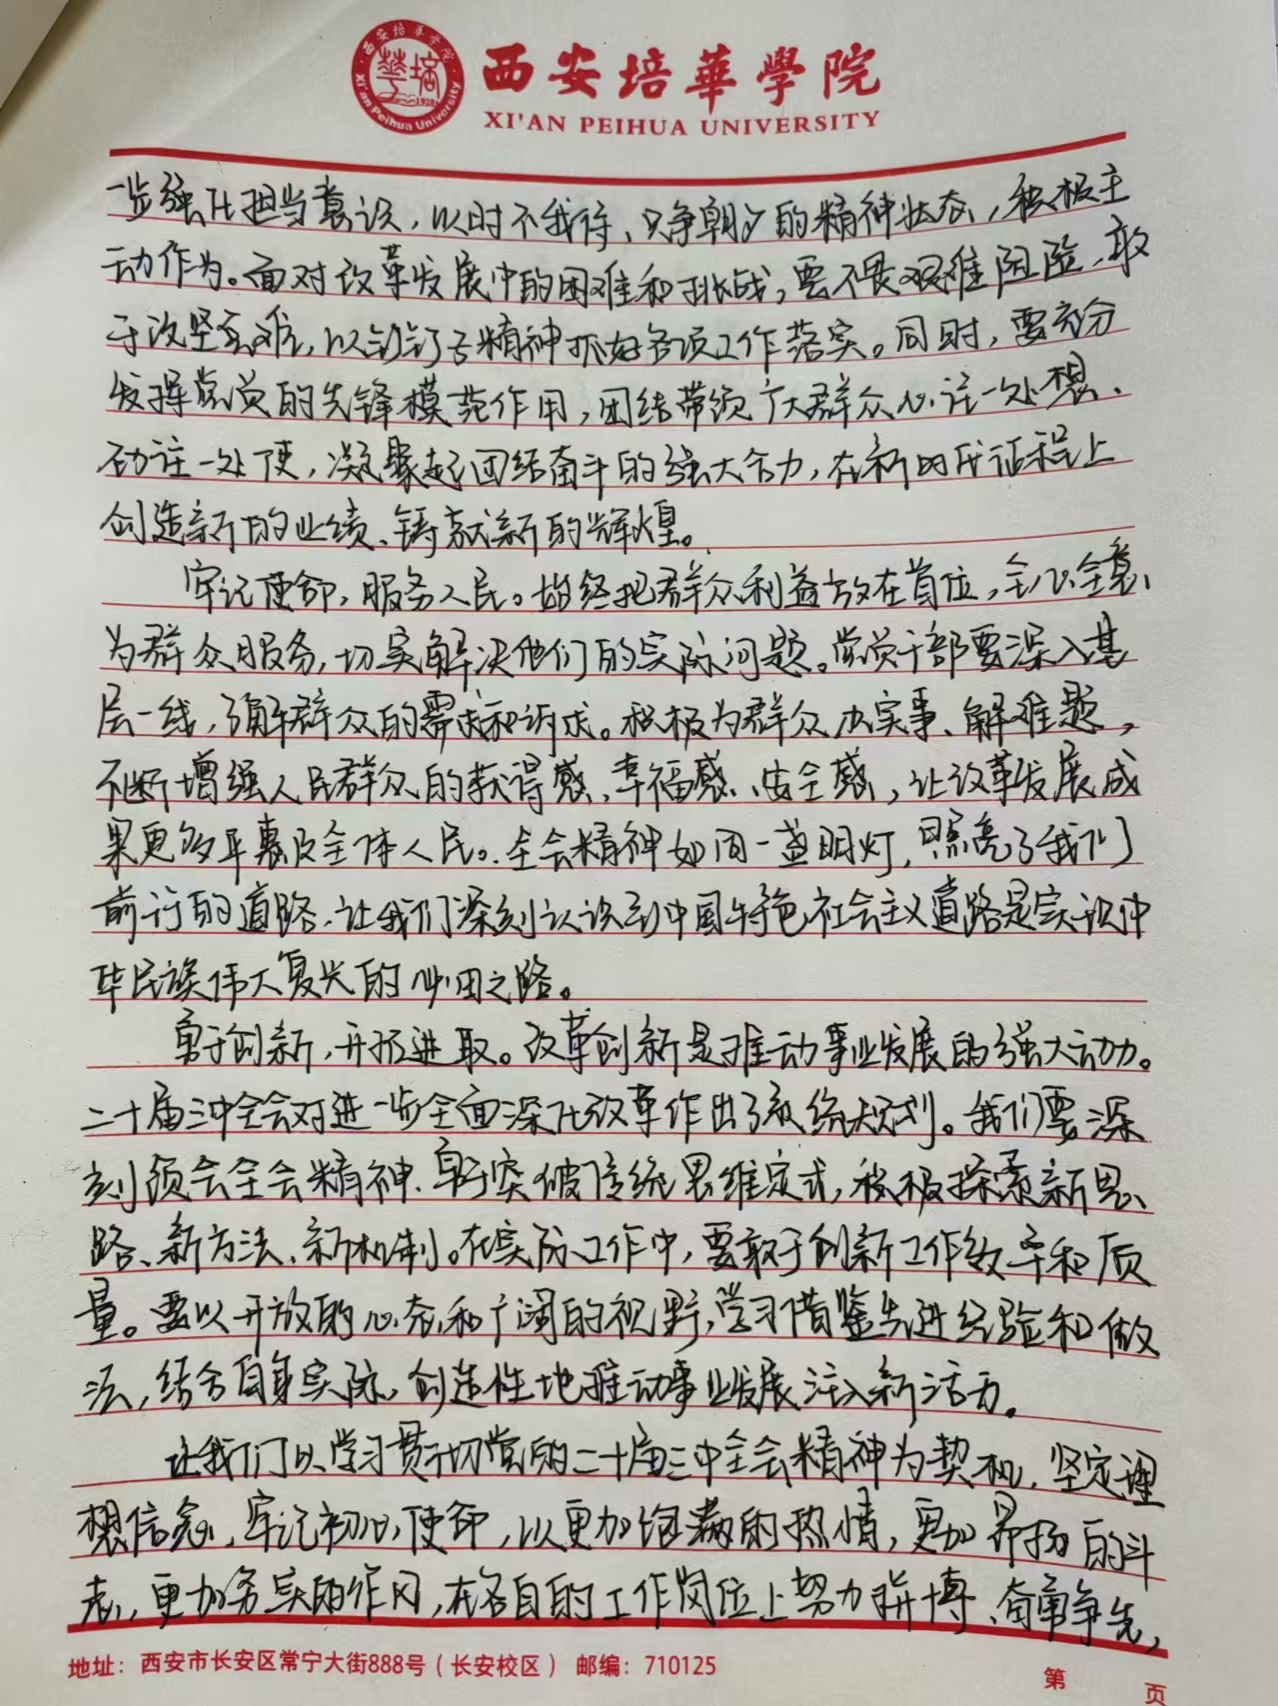 西安培華學院
XI'AN PEIHUA UNIVERSITY
一步强化担当意识，以时不我待、只争朝夕的精神状态，积极主
动作为。面对改革发展中的困难和挑战，要不畏艰难阻险、敢
于攻坚克难，以钉钉子精神抓好各项工作落实。同时，要充分
发挥党员的先锋模范作用，团结带领广大群众心往一处想、
劲往一处使，凝聚起团结奋斗的强大合力，在新时代征程上
创造新的业绩、铸就新的辉煌。
牢记使命，服务人民。始终把群众利益放在首位，全心全意
为群众服务，切实解决他们的实际问题。党员干部要深入基
层一线，了解群众的需求和诉求。积极为群众办实事、解难题，
不断增强人民群众的获得感、幸福感、安全感，让改革发展成
果更多平惠及全体人民。全会精神如同一盏明灯，照亮了我们
前行的道路，让我们深刻认识到中国特色社会主义道路是实现中
华民族伟大复兴的必由之路。
勇于创新，开拓进取。改革创新是推动事业发展的强大动力。
二十届三中全会对进一步全面深化改革作出了系统规划。我们要深
刻领会全会精神、勇于突破传统思维定式，积极探索新思
路、新方法、新机制。在实际工作中，要敢于创新工作效率和质
量。要以开放的心态和广阔的视野，学习借鉴先进经验和做
法，结合自身实际，创造性地推动事业发展注入新活力。
让我们以学习贯彻党的二十届三中全会精神为契机，坚定理
想信念，牢记初心使命，以更加饱满的热情，更加昂扬的斗
志，更加务实的作风，在各自的工作岗位上努力拼搏、奋勇争先，
地址：西安市长安区常宁大街888号（长安校区） 邮编：710125
第 页